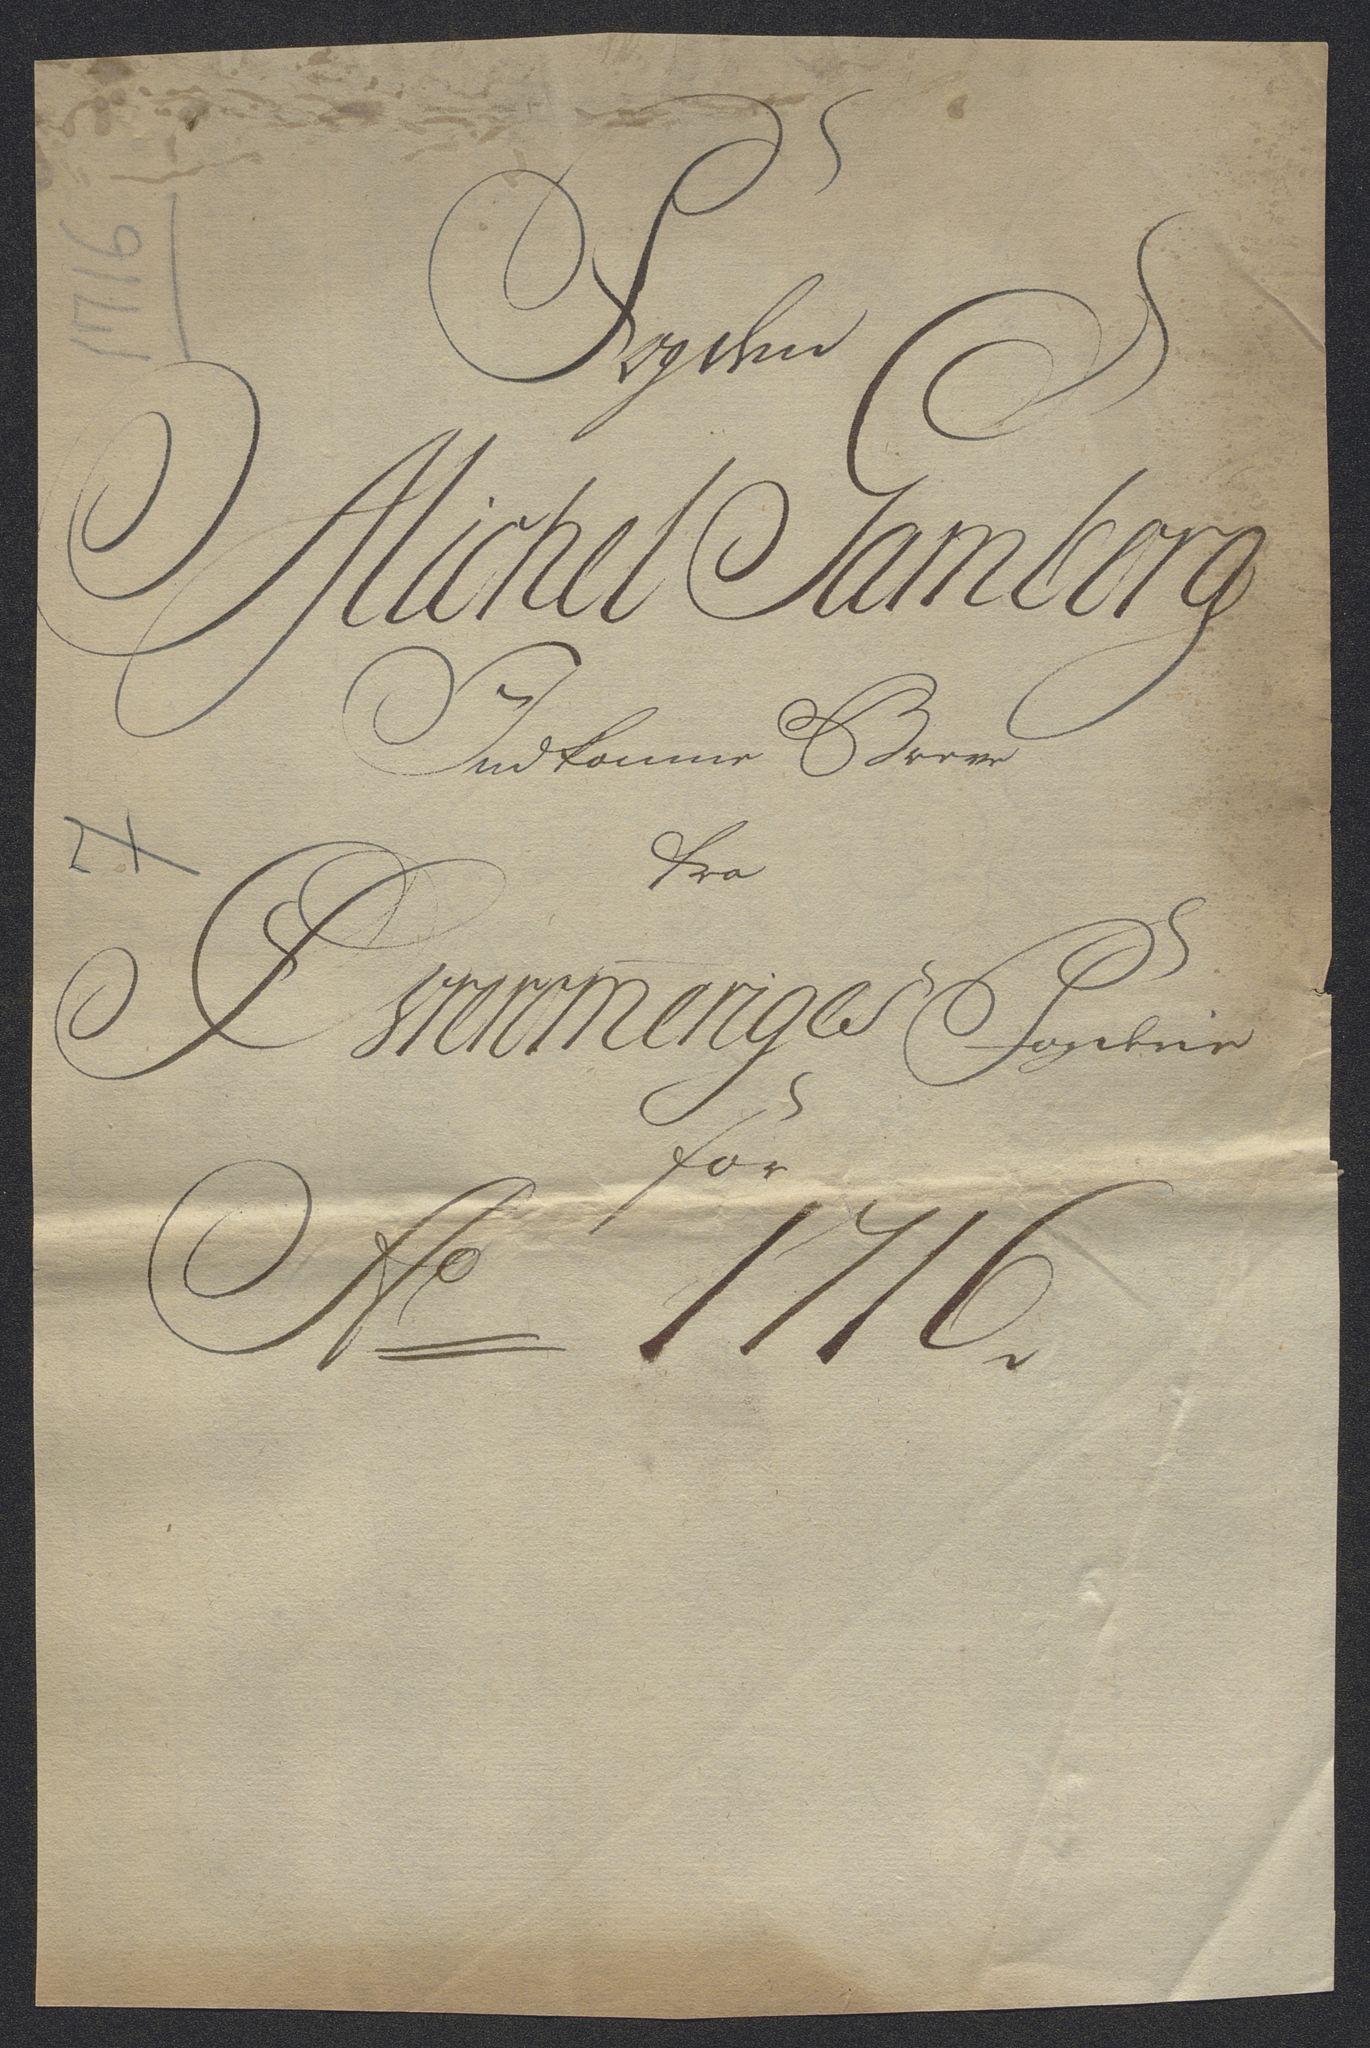 1716
Fogden
Michel Jamborg
Indkomne Breve
fra
7
Qværmeriges Fogderie
for
Ao 1716